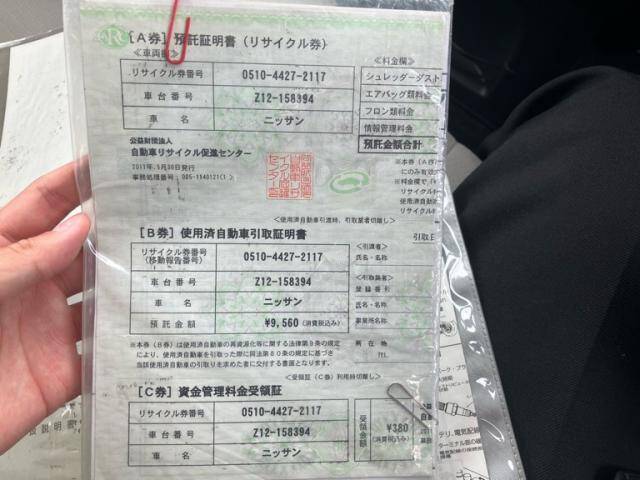 [A券] 預託証明書 (リサイクル券)
≪車両欄≫
リサイクル券番号 0510-4427-2117
車台番号 Z12-158394
車名 ニッサン
≪料金欄≫
シュレッダーダスト
エアバッグ類料金
フロン類料金
情報管理料金
預託金額合計
公益財団法人
自動車リサイクル促進センター
2011年 5月30日発行
事務処理番号: 005-1140121(1)
※本券 (A券)
にのみ有効
※料金欄で「
リサイクル
使用済自動車
リサイクル料
<使用済自動車引渡時、引取業者切離し>
[B券] 使用済自動車引取証明書
引取日
リサイクル券番号
(移動報告番号) 0510-4427-2117
車台番号 Z12-158394
車名 ニッサン
預託金額 ¥9,560 (消費税込み)
<引渡者>
氏名・名称
<引取業者>
登録番号
氏名・名称
事業所名
所在地
TEL
※本券 (B券) は使用済自動車の再資源化等に関する法律第9条の規定
により、使用済自動車を引取った際に同法第80条の規定に基づき
当該使用済自動車の引取りを求めた者に交付する書面となります。
<受領証 (C券) 利用時切離し>
[C券] 資金管理料金受領証
リサイクル券番号 0510-4427-2117
車台番号 Z12-158394
車名 ニッサン
受領金額
¥380
(消費税込み)
公益